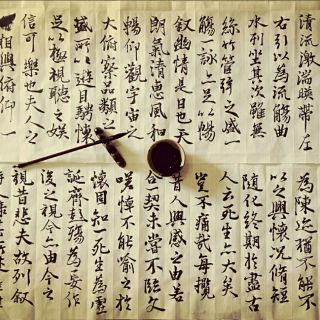 清流激湍映帶左
右引以為流觴曲
水列坐其次雖無
絲竹管弦之盛一
觴一詠亦足以暢
叙幽情是日也天
朗氣清惠風和
暢仰觀宇宙之
大俯察品類之
盛所以遊目騁懷
足以極視聽之娛
信可樂也夫人之
相與俯仰一
為陳迹猶不能不
以之興懷況脩短
隨化終期於盡古
人云死生亦大矣
豈不痛哉每攬
昔人興感之由若
合一契未嘗不臨文
嗟悼不能喻之於
懷固知一死生為虛
誕齊彭殤為妄作
後之視今亦由今之
視昔悲夫故列叙